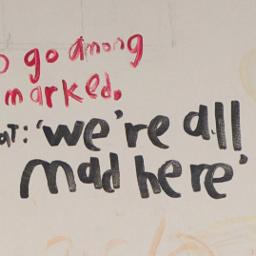 go among
marked.
'we're all
mad here'